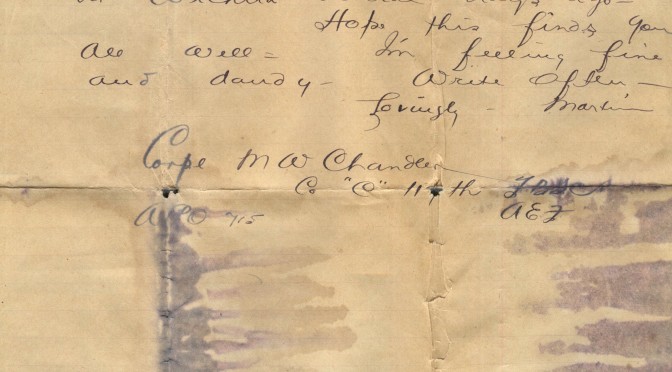 days ago -
Hope this finds you
All well = I'm feeling fine
and dandy - Write Often -
Lovingly - Martin
Corpl M W Chandler
Co "C" 117th
APO 715 AEF